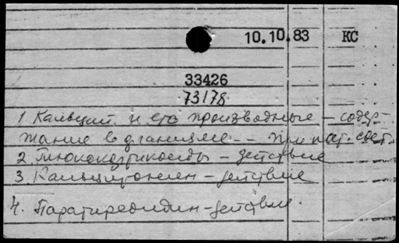 10.10.83 КС
33426
73178
1 Кальций и его производные – содер-
жание в организме – при пат. сост.
2. Глюкокортикоиды – действие
3. Кальцитонин – действие
4. Паратиреоидин – действие.